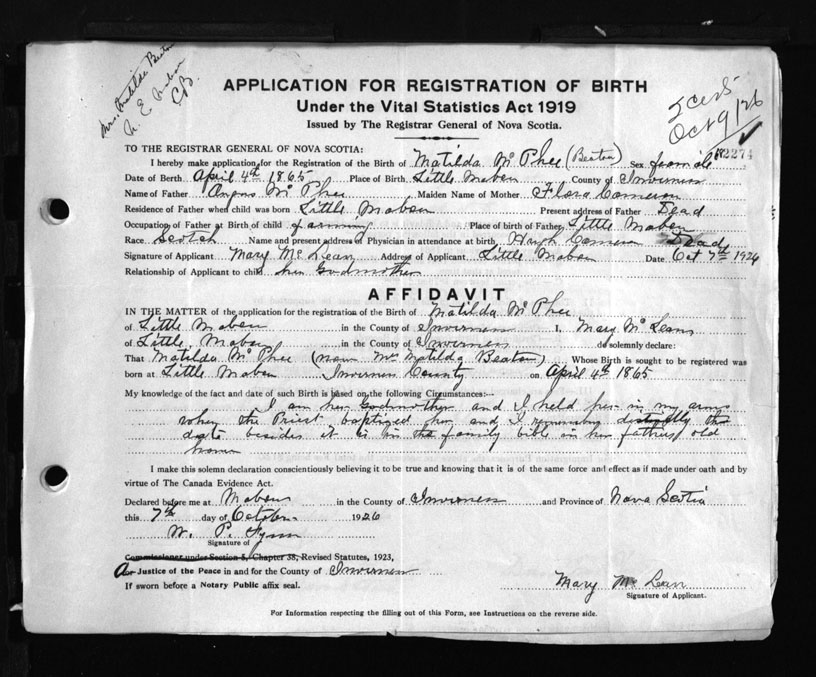 Mrs. Matilda Beaton
C.B.
APPLICATION FOR REGISTRATION OF BIRTH
Under the Vital Statistics Act 1919
Issued by The Registrar General of Nova Scotia.
Oct 9/26
TO THE REGISTRAR GENERAL OF NOVA SCOTIA:
2274
I hereby make application for the Registration of the Birth of Matilda McPhee (Beaton) Sex female
Date of Birth April 4th 1865 Place of Birth Little Mabou County of Inverness
Name of Father Angus McPhee Maiden Name of Mother Flora Cameron
Residence of Father when child was born Little Mabou Present address of Father Dead
Occupation of Father at Birth of child farming Place of birth of Father Little Mabou
Race Scotch Name and present address of Physician in attendance at birth Hugh Cameron Dead
Signature of Applicant Mary McLean Address of Applicant Little Mabou Date Oct 7th 1926
Relationship of Applicant to child her Godmother
AFFIDAVIT
IN THE MATTER of the application for the registration of the Birth of Matilda McPhee
of Little Mabou in the County of Inverness I, Mary McLean
of Little Mabou in the County of Inverness do solemnly declare:
That Matilda McPhee (now Mrs Matilda Beaton) Whose Birth is sought to be registered was
born at Little Mabou Inverness County on April 4th 1865
My knowledge of the fact and date of such Birth is based on the following Circumstances:—
I am her Godmother and I held her in my arms
when the Priest baptized her and I remember distinctly the
date besides it is in the family bible in her fathers old
home
I make this solemn declaration conscientiously believing it to be true and knowing that it is of the same force and effect as if made under oath and by
virtue of The Canada Evidence Act.
Declared before me at Mabou in the County of Inverness and Province of Nova Scotia
this 7th day of October 1926
W. P.
Signature of
Commissioner under Section 5, Chapter 38, Revised Statutes, 1923,
A Justice of the Peace in and for the County of Inverness
If sworn before a Notary Public affix seal.
Mary McLean
Signature of Applicant.
For Information respecting the filling out of this Form, see Instructions on the reverse side.